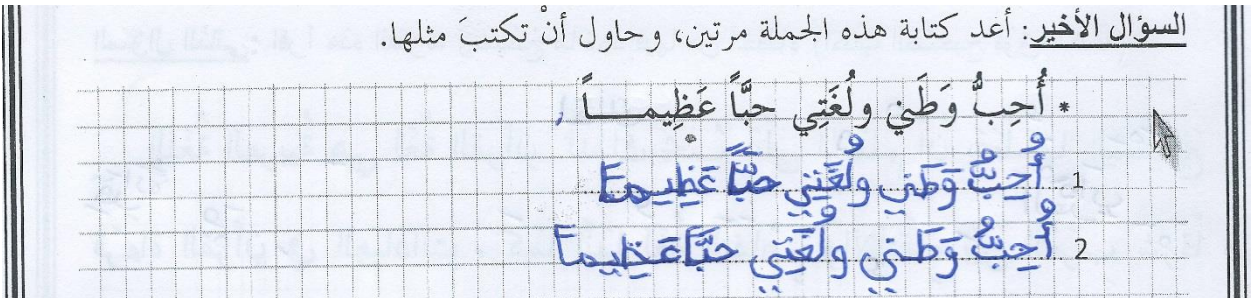 السؤال الأخير: أعد كتابة هذه الجملة مرتين، وحاول أنْ تكتبَ مثلها.
* أُحِبُّ وَطَني ولُغَتِي حبَّاً عَظِيمـــاً
1 أُحِبُّ وَطَني ولُغَتِي حبَّاً عَظِيماً
2 أُحِبُّ وَطَني ولُغَتِي حبَّاً عَظِيماً